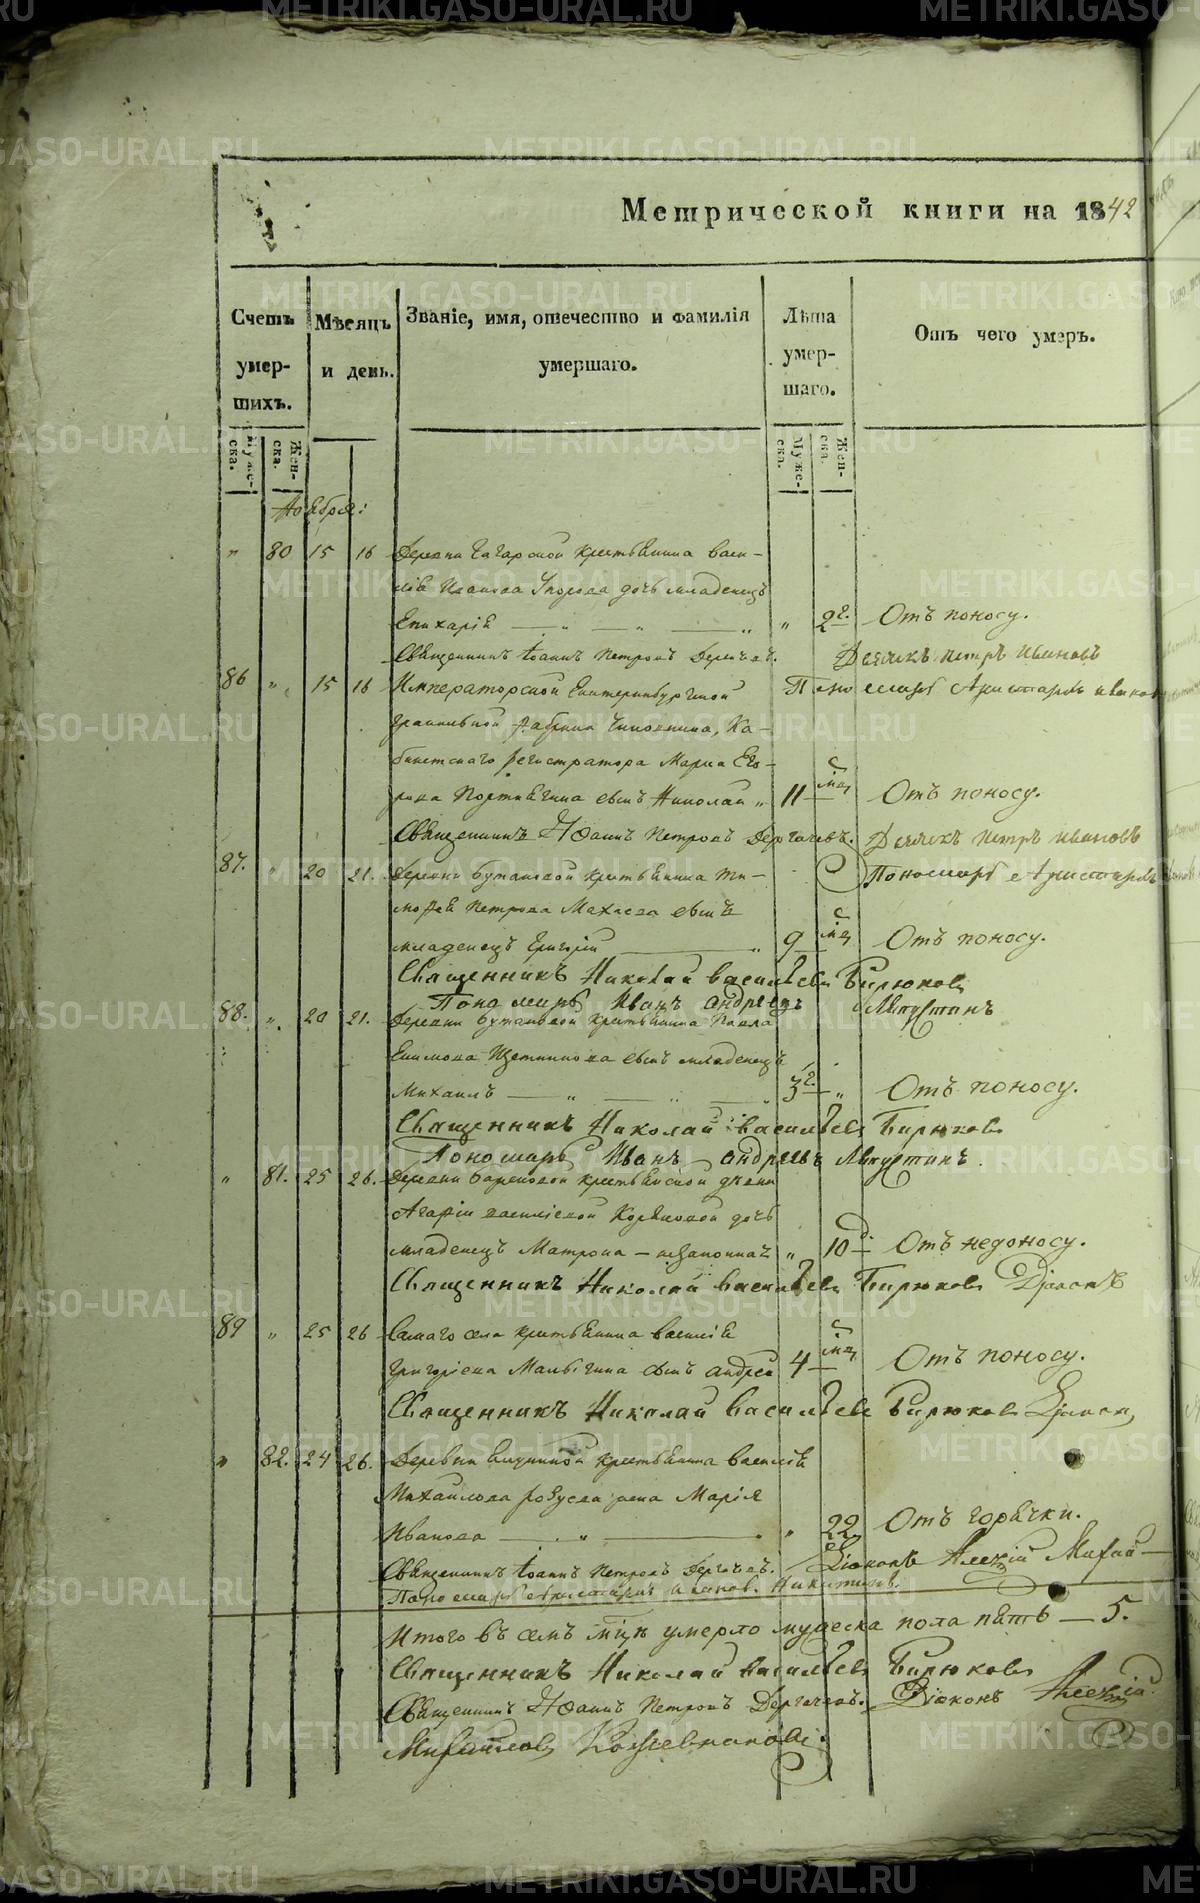 Метрической книги на 1842
Счетъ умершихъ.
Мѣсяцъ и день.
Званіе, имя, отечество и фамилія умершаго.
Лѣта умершаго.
Отъ чего умеръ.
Муже-ска.
Жен-ска.
Муже-ска.
Жен-ска.
Ноября:
" 80 15 16 Деревни крестьянина Васи-
лія Иванова дочь младенецъ
Епихарія " 2 г. Отъ поносу.
Священникъ Іоаннъ Петровъ Дергачевъ. Дьячекъ Петръ Ивановъ
86 " 15 16 Императорской Екатеринбургской Пономарь Аристархъ Иванов
Гранильной фабрики чиновника, Ка-
бинетскаго регистратора Марка Его-
рова сынъ Николай 11 мц Отъ поносу.
Священникъ Іоаннъ Петровъ Дергачевъ. Дьячекъ Петръ Ивановъ
87. " 20 21. Деревни крестьянина Ти- Пономарь Аристархъ
мофея Петрова сынъ
младенецъ Григорій 9 мц Отъ поносу.
Священникъ Николай Васильевъ Бирюковъ
Пономарь Иванъ Андреевъ
88. " 20 21. Деревни крестьянина Павла
Екимова Щетникова сынъ младенецъ
Михаилъ 3 г. " Отъ поносу.
Священникъ Николай Васильевъ Бирюковъ
Пономарь Иванъ Андреевъ
" 81. 25 26. Деревни крестьянской
Агафіи Василіевой дочь
младенецъ Матрона – незаконная " 10 д. Отъ недоносу.
Священникъ Николай Васильевъ Бирюковъ Діаконъ
89 " 25 26 Самаго села крестьянина Василія
Григоріева Малыгина сынъ Андрей 4 мц Отъ поносу.
Священникъ Николай Васильевъ Бирюковъ Діакон
" 82. 24 26. Деревни крестьянина Василія
Михайлова жена Марія
Иванова " 22 Отъ горячки.
Священникъ Іоаннъ Петровъ Дергачевъ. Діаконъ Алексій Михай-
Пономарь Аристархъ Иванов. Никитинъ.
Итого въ семъ мцѣ умерло мужеска пола пять – 5.
Священникъ Николай Васильевъ Бирюковъ
Священникъ Іоаннъ Петровъ Дергачевъ. Діаконъ Алексій
Михайловъ
METRIKI.GASO-URAL.RU